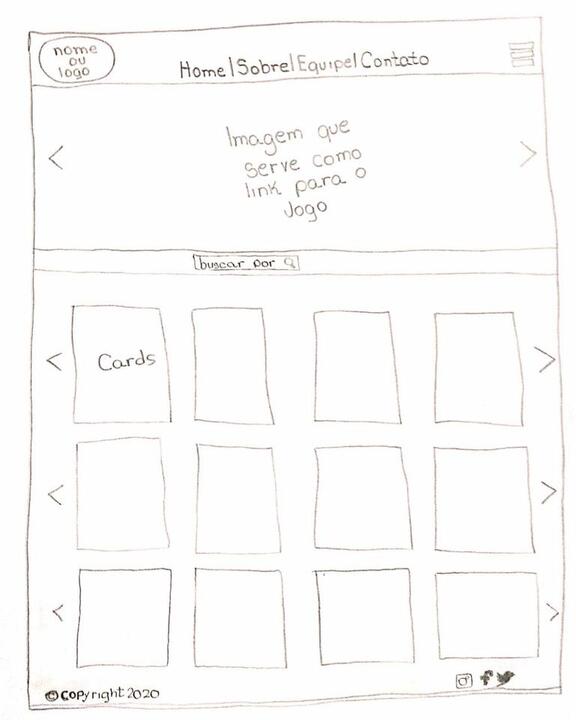 nome
ou
logo
Home|Sobre|Equipe|Contato
Imagem que
serve como
link para o
Jogo
buscar por
Cards
©Copyright 2020